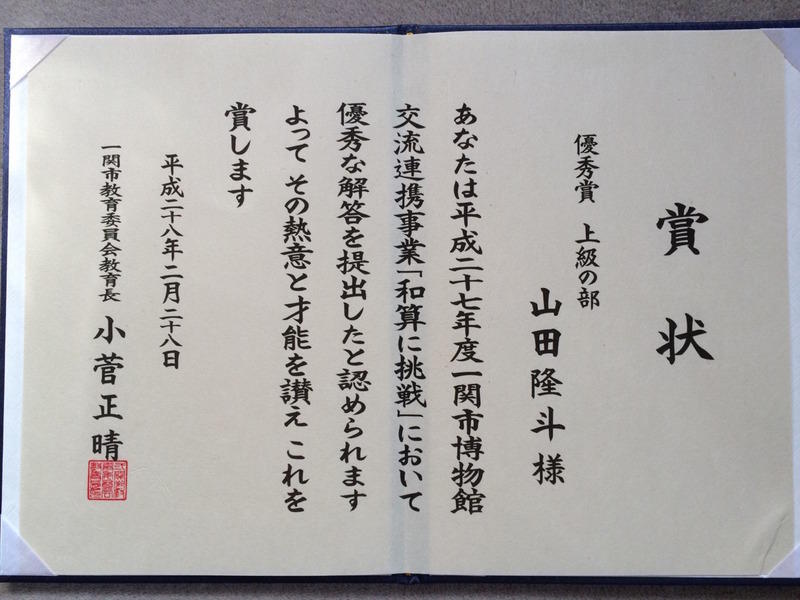 賞状
優秀賞 上級の部
山田隆斗様
あなたは平成二十七年度一関市博物館
交流連携事業「和算に挑戦」において
優秀な解答を提出したと認められます
よって その熱意と才能を讃え これを
賞します
平成二十八年二月二十八日
一関市教育委員会教育長 小菅正晴